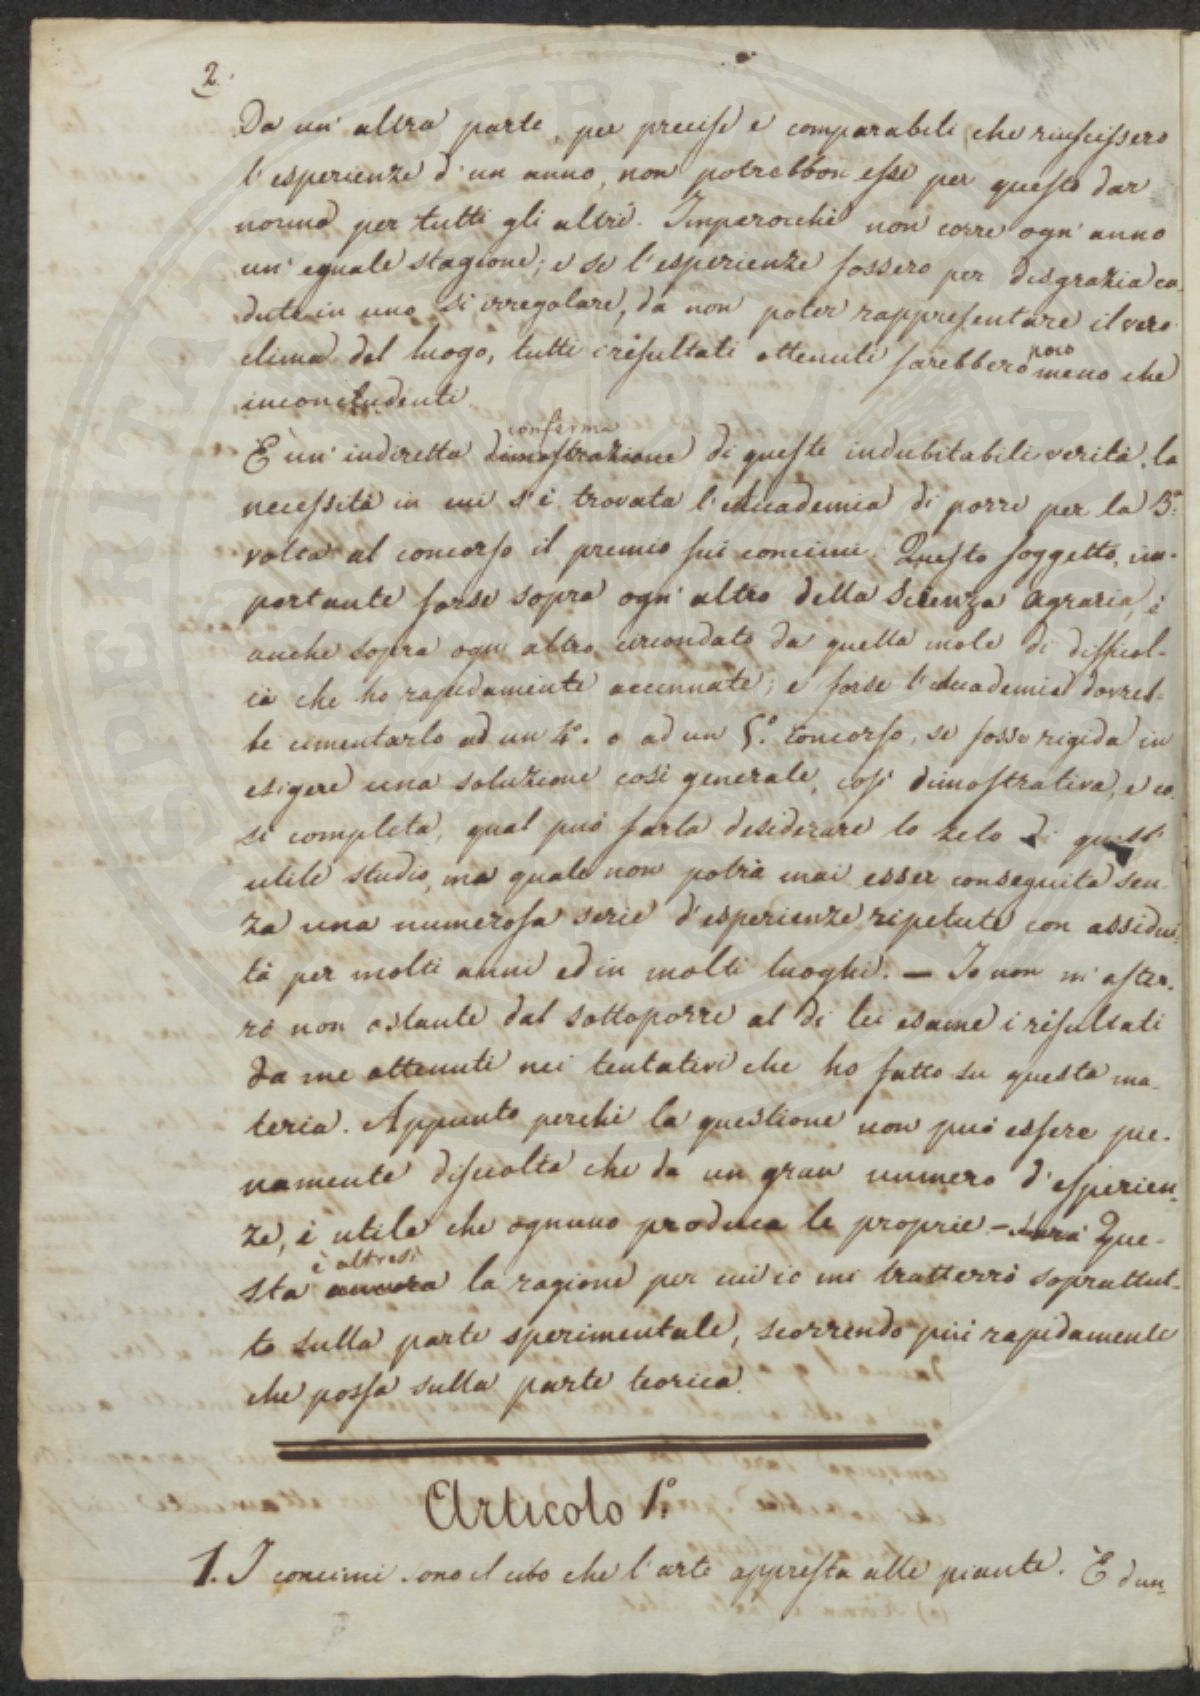 2.
Da un' altra parte, per precise e comparabili, che riuscissero
l'esperienze d'un anno, non potrebbon esse per questo dar
norma per tutti gli altri. Imperocchè non corre ogn' anno
un' eguale stagione; e se l'esperienze fossero per disgrazia ca-
dute in uno sì irregolare, da non poter rappresentare il vero
clima del luogo, tutti i risultati ottenuti sarebbero poco meno che
inconcludenti.
È un' indiretta dimostrazione conferma di queste indubitabili verità, la
necessità in cui s'è trovata l'Accademia di porre per la 3ª
volta al concorso il premio sui concimi. Questo soggetto, im-
portante forse sopra ogn' altro della Scienza agraria, è
anche sopra ogni altro circondato da quella mole di difficol-
tà che ho rapidamente accennate; e forse l'Accademia dovreb-
be cimentarlo ad un 4º. o ad un 5º. concorso, se fosse rigida in
esigere una soluzione così generale, così dimostrativa, e co-
sì completa, qual può farla desiderare lo zelo di quest'
utile studio, ma quale non potrà mai esser conseguita sen-
za una numerosa serie d'esperienze ripetute con assidui-
tà per molti anni ed in molti luoghi. — Io non m'aster-
rò non ostante dal sottoporre al di lei esame i risultati
da me ottenuti nei tentativi che ho fatto su questa ma-
teria. Appunto perchè la questione non può essere pie-
namente disciolta che da un gran numero d'esperien-
ze, è utile che ognuno produca le proprie — Sarà Que-
sta ancora è altresì la ragione per cui io mi tratterrò soprattut-
to sulla parte sperimentale, scorrendo più rapidamente
che possa sulla parte teorica.
Articolo 1º.
1. I concimi sono il cibo che l'arte appresta alle piante. È dun-